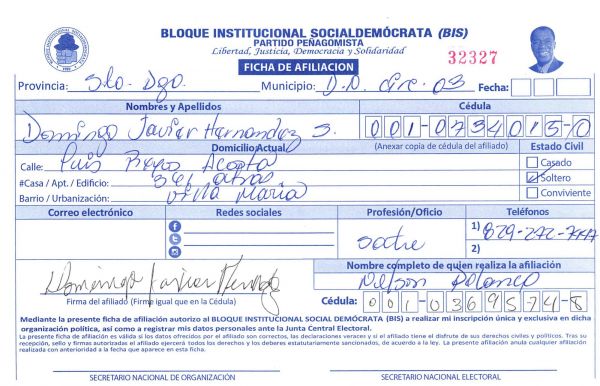 BLOQUE INSTITUCIONAL SOCIALDEMÓCRATA (BIS)
PARTIDO PEÑAGOMISTA
Libertad, Justicia, Democracia y Solidaridad
32327
FICHA DE AFILIACION
Provincia: Sto. Dgo. Municipio: D.N. Circ. 03 Fecha:
Nombres y Apellidos Cédula
Domingo Javier Hernandez S. 001-0734015-0
Domicilio Actual (Anexar copia de cédula del afiliado) Estado Civil
Calle: Luis Reyes Acosta Casado
#Casa / Apt. / Edificio: atras Soltero
Barrio / Urbanización: Villa Maria Conviviente
Correo electrónico Redes sociales Profesión/Oficio Teléfonos
1) 829-272-
sastre 2)
Nombre completo de quien realiza la afiliación
Domingo Javier Hernandez Nelson Polanco
Firma del afiliado (Firma igual que en la Cédula) Cédula: 001-0369574-8
Mediante la presente ficha de afiliación autorizo al BLOQUE INSTITUCIONAL SOCIAL DEMÓCRATA (BIS) a realizar mi inscripción única y exclusiva en dicha
organización política, así como a registrar mis datos personales ante la Junta Central Electoral.
La presente ficha de afiliación es válida si los datos ofrecidos por el afiliado son correctos, las declaraciones veraces y si el afiliado tiene el disfrute de sus derechos civiles y políticos. Tras su
recepción, sello y firmas autorizadas el afiliado ejercerá todos los derechos y los deberes estatutariamente sancionados, de acuerdo a la ley. La presente afiliación anula cualquier afiliación
realizada con anterioridad a la fecha que aparece en esta ficha.
SECRETARIO NACIONAL DE ORGANIZACIÓN SECRETARIO NACIONAL ELECTORAL